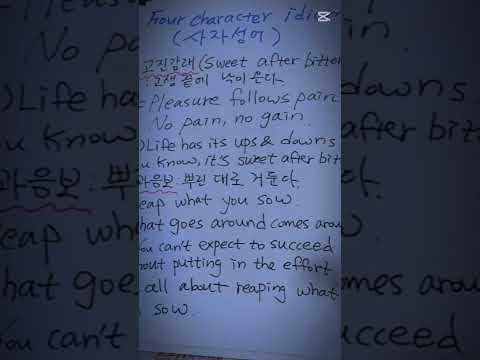 Four character idi
(사자성어)
고진감래 (Sweet after bitter
: 고생 끝에 낙이 온다.
= Pleasure follows pain.
No pain, no gain.
)Life has its ups & downs.
u know, it's sweet after bitt
과응보: 뿌린 대로 거둔다.
eap what you sow.
hat goes around comes arou
ou can't expect to succeed
out putting in the effort
all about reaping what
sow.